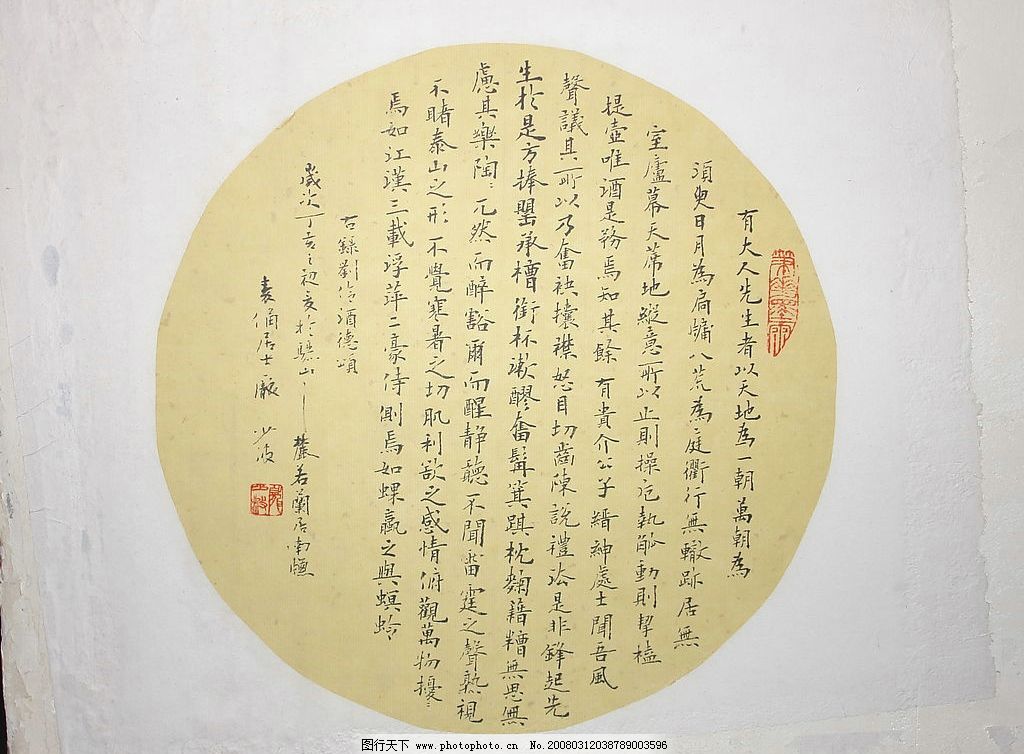 有大人先生者以天地為一朝萬朝為
須臾日月為扃牖八荒為庭衢行無轍跡居無
室廬幕天蓆地縱意所以止則操卮執觚動則挈榼
提壺唯酒是務焉知其餘有貴介公子縉紳處士聞吾風
聲議其所以乃奮袂攘襟怒目切齒陳說禮法是非鋒起先
生於是方捧罌承槽銜杯漱醪奮髯箕踑枕麴籍糟無思無
慮其樂陶〻兀然而醉豁爾而醒靜聽不聞雷霆之聲熟視
不睹泰山之形不覺寒暑之切肌利欲之感情俯觀萬物擾〻
焉如江漢三載浮萍二豪侍側焉如蜾蠃之與螟蛉
右錄劉伶酒德頌
歲次丁亥之初夏於驪山之麓若蘭居南牖
居士
少波
图行天下 www.photophoto.cn No.20080312038789003596